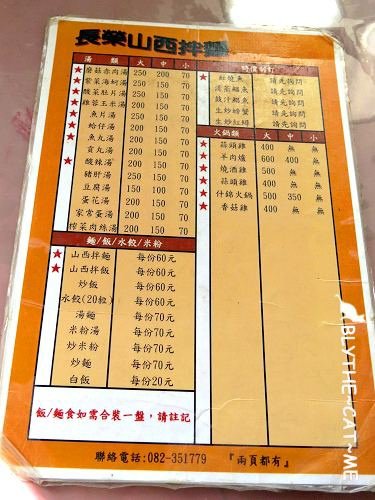 長榮山西拌麵
湯類 大 中 小
★ 蘑菇赤肉湯 250 200 70
★ 紫菜海蚵湯 250 200 70
★ 酸菜肚片湯 250 200 70
★ 雞蓉玉米湯 200 150 70
★ 魚片湯 200 150 70
蛤仔湯 200 150 70
★ 魚丸湯 200 150 70
貢丸湯 200 150 70
★ 酸辣湯 200 150 70
豬肝湯 200 150 70
豆腐湯 150 100 50
蛋花湯 200 150 70
家常蛋湯 200 150 70
榨菜肉絲湯 200 150 70
麵/飯/水餃/米粉
★ 山西拌麵 每份60元
★ 山西拌飯 每份60元
炒飯 每份60元
水餃(20粒) 每份60元
湯麵 每份70元
米粉湯 每份70元
炒米粉 每份70元
炒麵 每份70元
白飯 每份20元
飯/麵食如需合裝一盤,請註記
★ 紅燒魚 請先詢問
清蒸鱸魚 請先詢問
豉汁鱸魚 請先詢問
生炒螃蟹 請先詢問
生炒紅蟳 請先詢問
火鍋類 大 中 小
★ 蒜頭雞 400 無 無
★ 羊肉爐 600 400 無
★ 燒酒雞 400 無 無
★ 蒜頭雞 400 無 無
★ 什錦火鍋 500 350 無
★ 香菇雞 400 無 無
聯絡電話:082-351779 『兩頁都有』
BLYTHE~CAT~ME